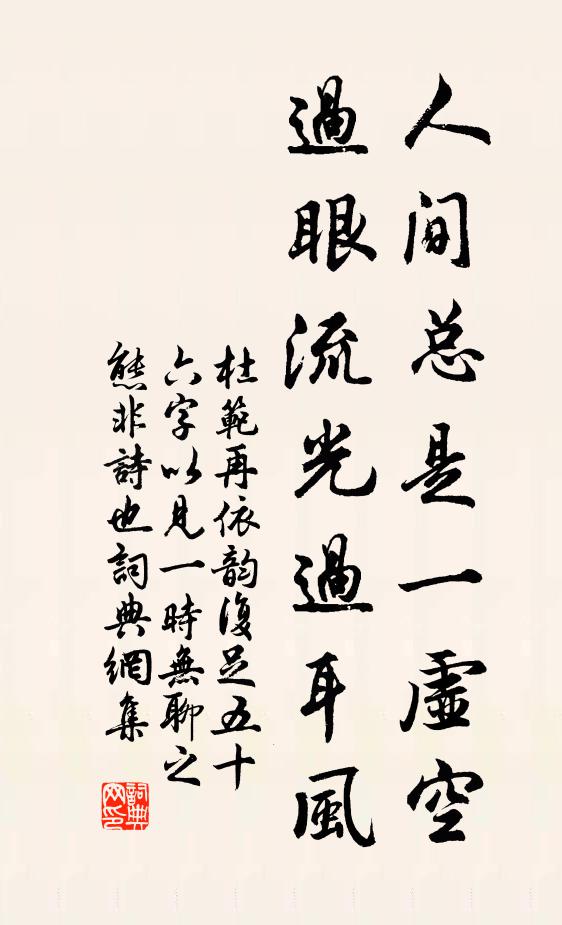 人间总是一虛空
過眼流光過耳風
杜範再依韵復足五十
六字以見一時無聊之
態非詩也詞典網集
詞典
网印